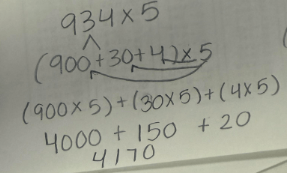 934×5
(900+30+4)×5
(900×5)+(30×5)+(4×5)
4000+150+20
4170